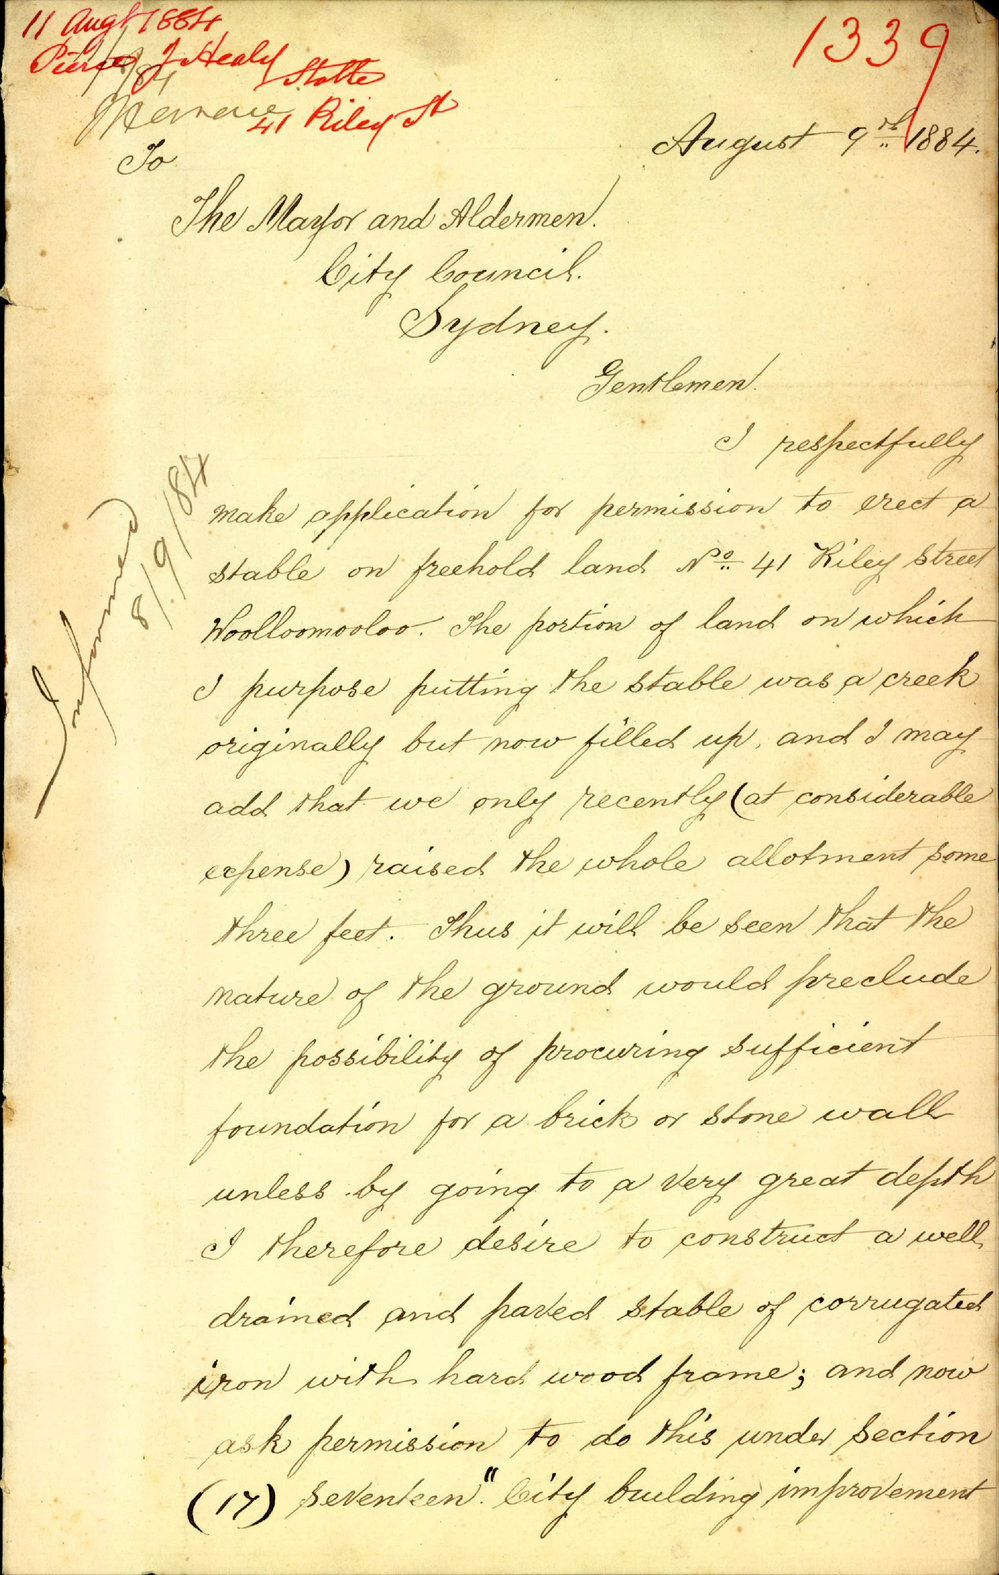 11 Augt 1884
1339
Pierce J Healy
Stable
41 Riley St
August 9th 1884.
To
The Mayor and Aldermen.
City Council.
Sydney.
Gentlemen.
I respectfully
make application for permission to erect a
stable on freehold land No 41 Riley Street
Woolloomooloo. The portion of land on which
I purpose putting the stable was a creek
originally but now filled up, and I may
add that we only recently (at considerable
expense) raised the whole allotment some
three feet. Thus it will be seen that the
nature of the ground would preclude
the possibility of procuring sufficient
foundation for a brick or stone wall
unless by going to a very great depth
I therefore desire to construct a well
drained and paved stable of corrugated
iron with hard wood frame; and now
ask permission to do this under section
(17) seventeen." City building improvement
Informed
8/9/84